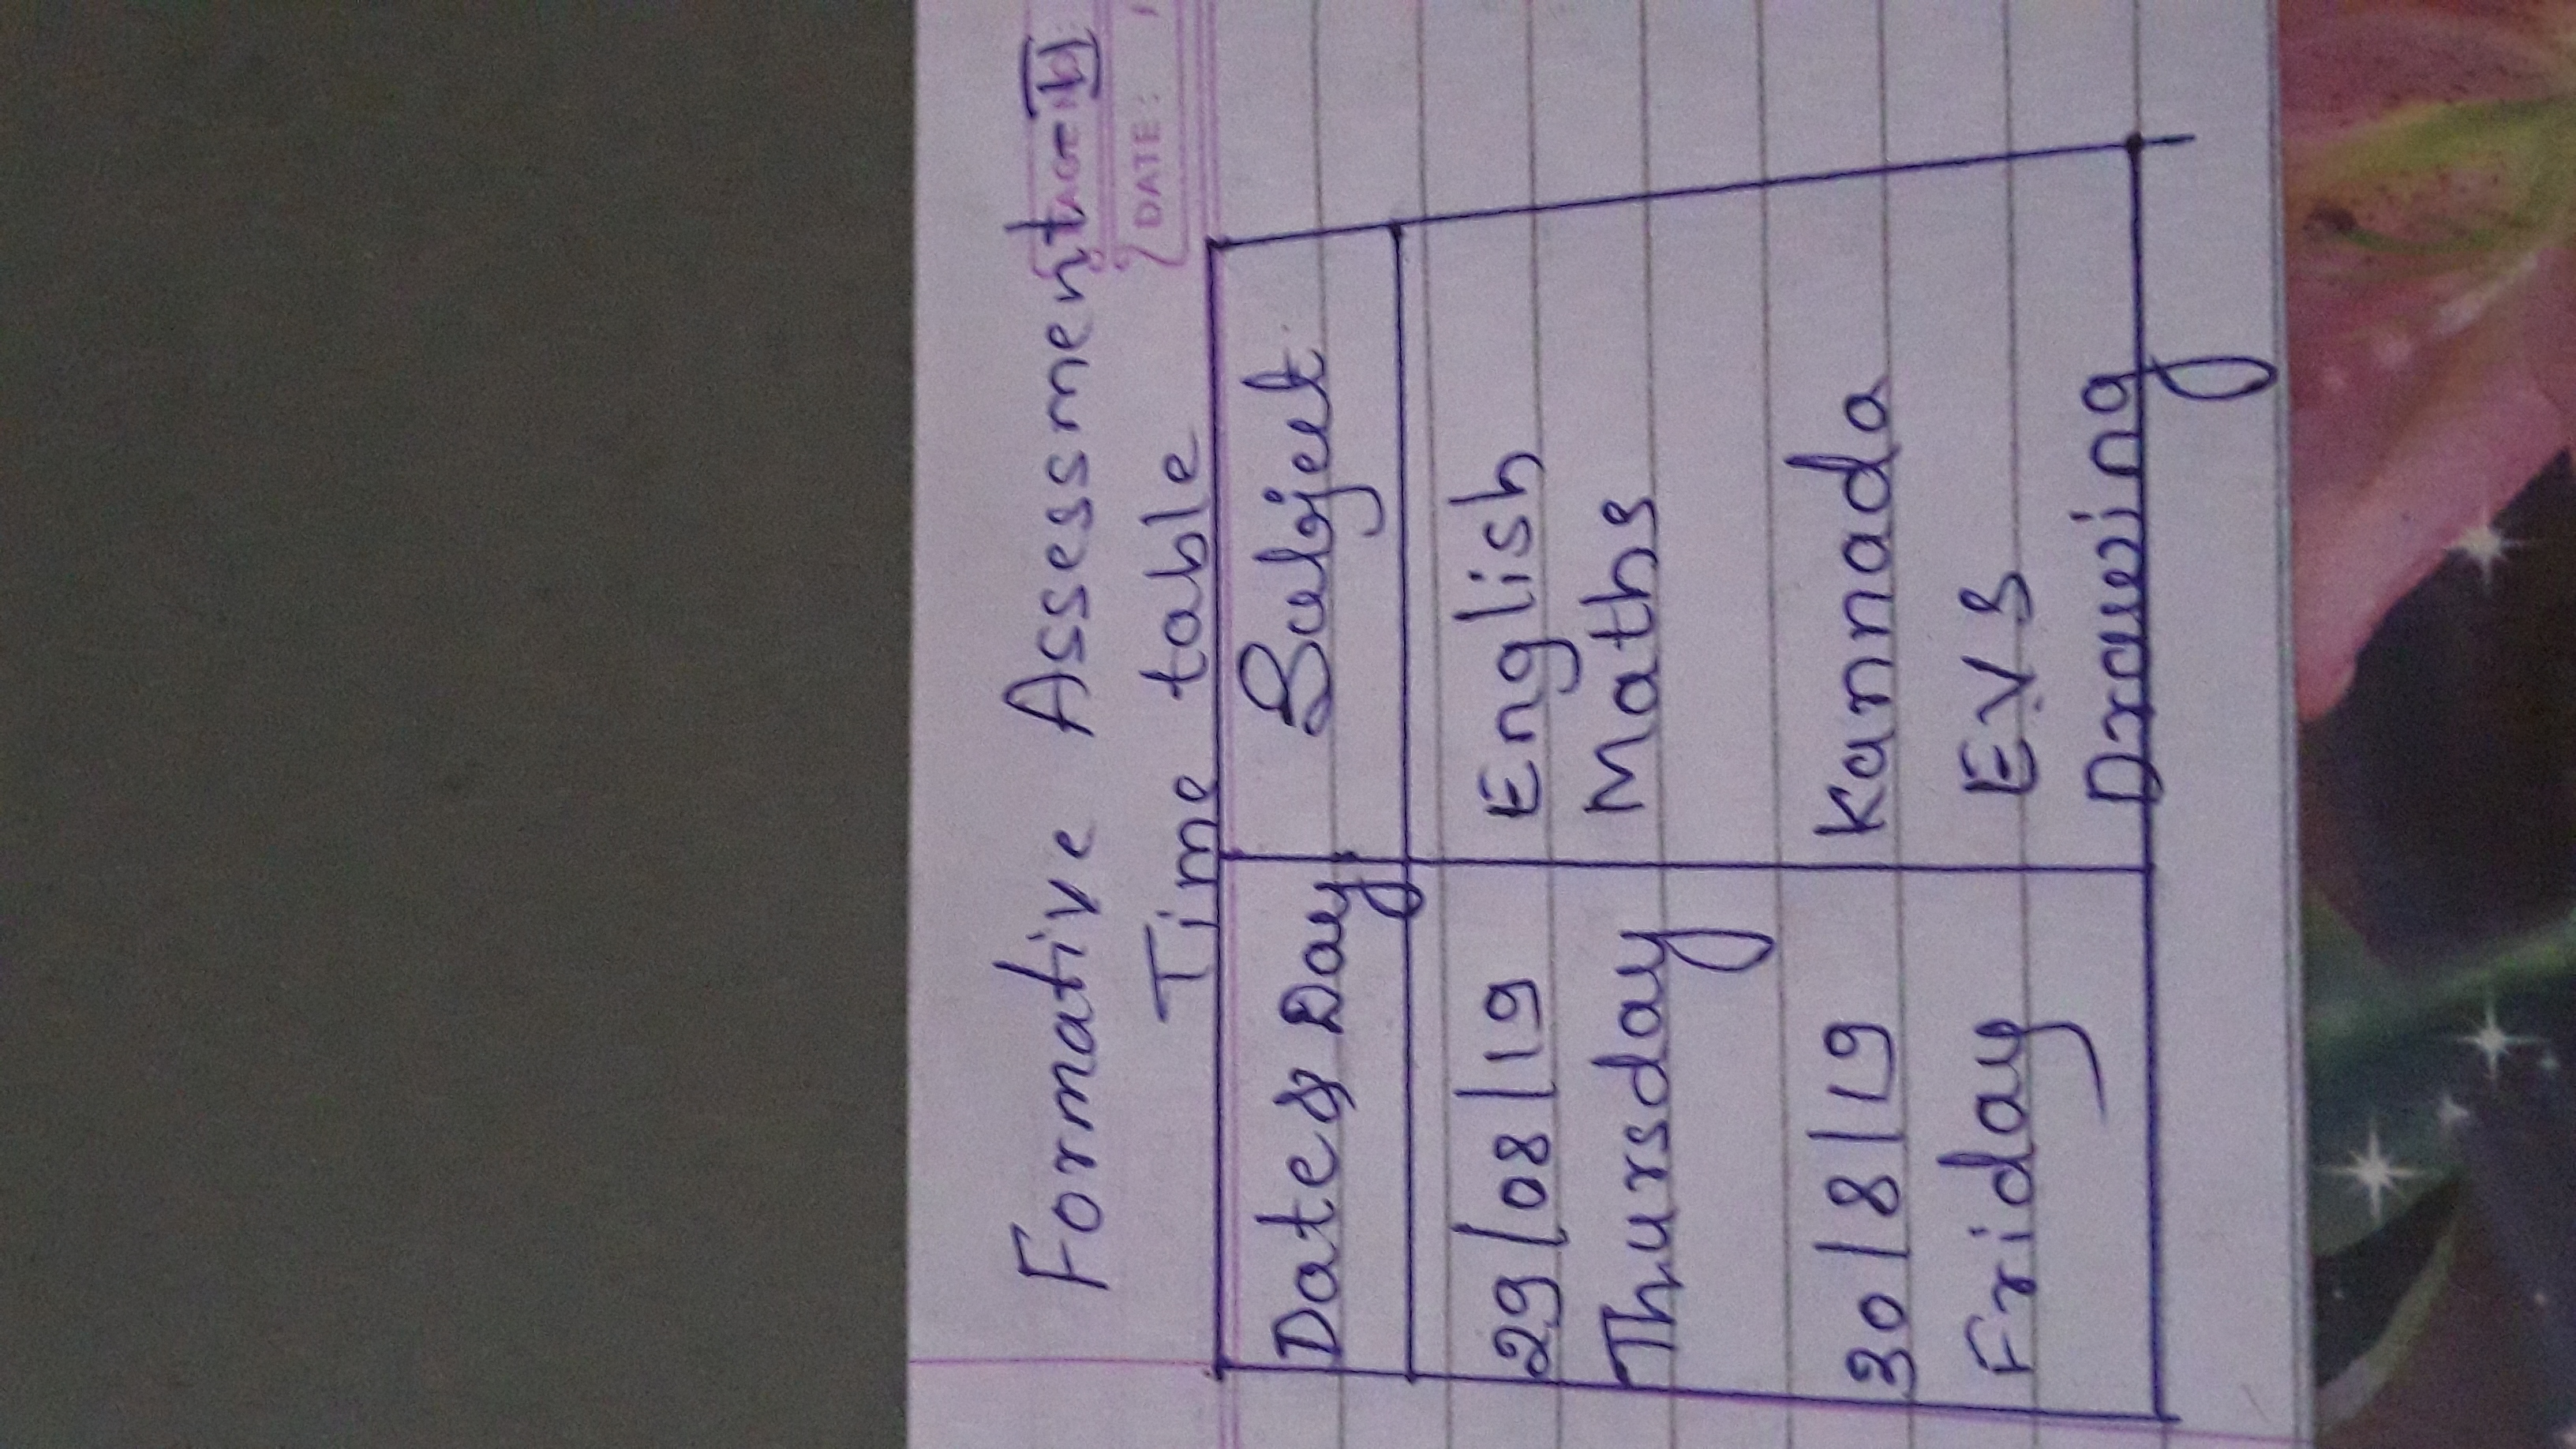 Formative Assessment - 
Time table
Date & Day Subject
29/08/19 English
Thursday Maths
30/8/19 Kannada
Friday EVS
Drawing
DATE: